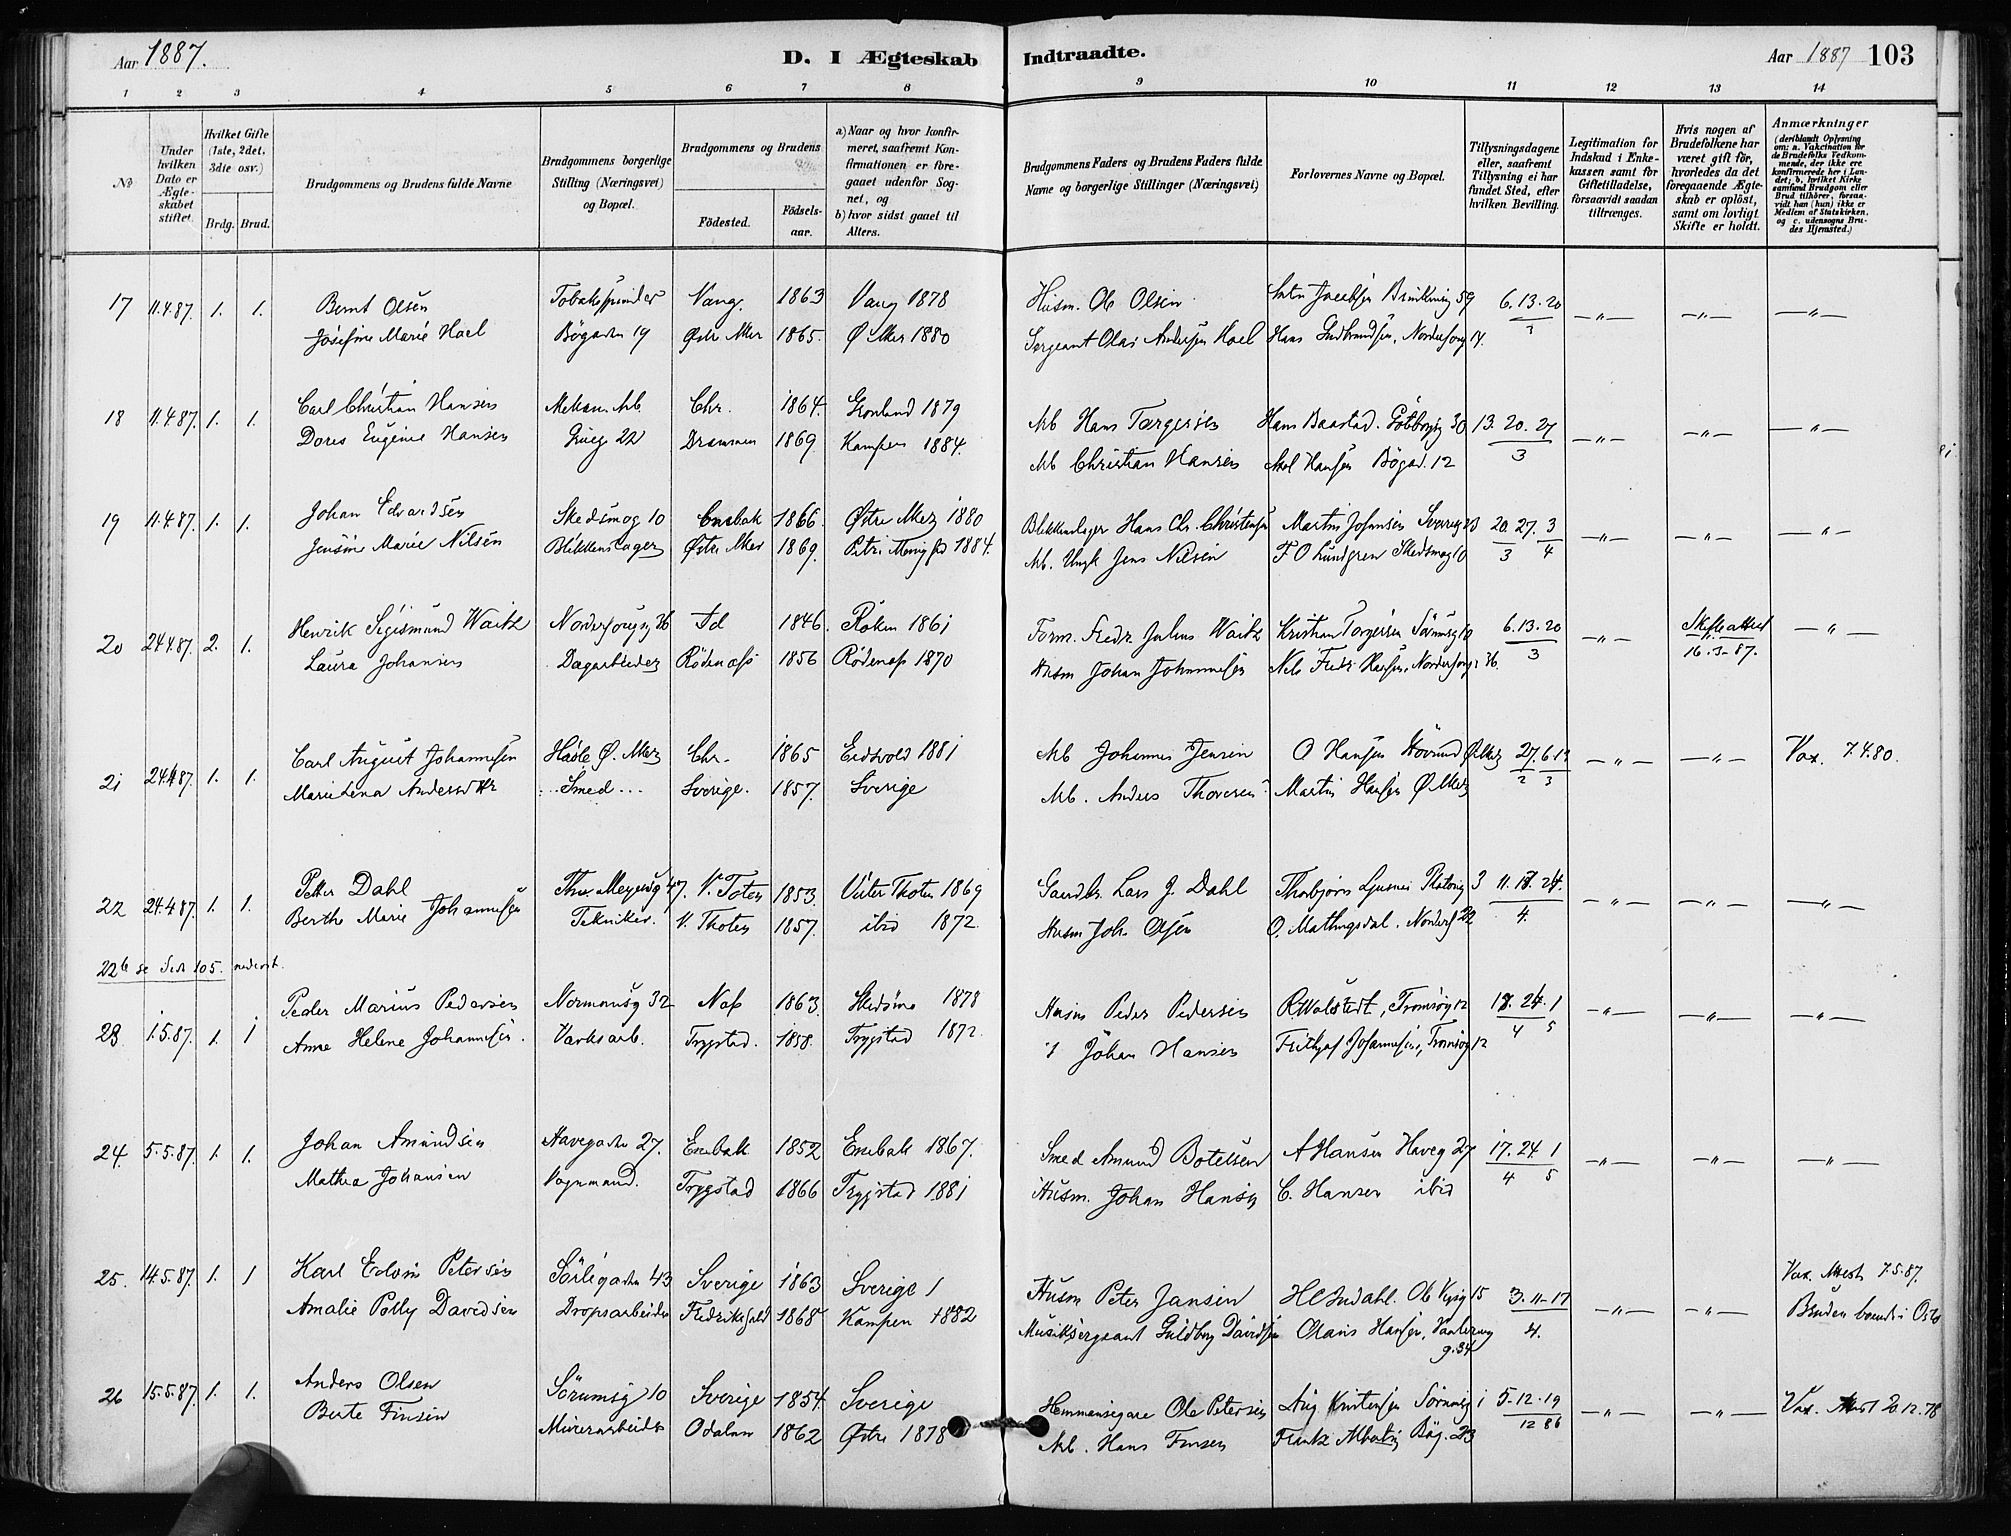 Aar 1887.
D. I Ægteskab Indtraadte.
Aar 1887 103
1 2 3 4 5 6 7 8 9 10 11 12 13 14
No
Under hvilken Dato er Ægteskabet stiftet.
Hvilket Gifte (1ste, 2det, 3die osv.)
Brdg. Brud.
Brudgommens og Brudens fulde Navne
Brudgommens borgerlige Stilling (Næringsvei) og Bopæl.
Brudgommens og Brudens
Fødested.
Fødselsaar.
a) Naar og hvor konfirmeret, saafremt Konfirmationen er foregaaet udenfor Sognet, og
b) hvor sidst gaaet til Alters.
Brudgommens Faders og Brudens Faders fulde Navne og borgerlige Stillinger (Næringsvei)
Forlovernes Navne og Bopæl.
Tillysningsdagene eller, saafremt Tillysning ei har fundet Sted, efter hvilken Bevilling.
Legitimation for Indskud i Enkekassen samt for Giftetilladelse, forsaavidt saadan tiltrænges.
Hvis nogen af Brudefolkene har været gift før, hvorledes da det foregaaende Ægteskab er opløst, samt om lovligt Skifte er holdt.
Anmærkninger (deriblandt Oplysning om: a. Vakcination for de Brudefolks Vedkommende, der ikke ere konfirmerede her i Landet; b. hvilket Kirkesamfund Brudgom eller Brud tilhører, forsaavidt han (hun) ikke er Medlem af Statskirken, og c. udensogns Brudes Hjemsted.)
17 11.4.87. 1. 1. Bernt Olsen Tobakspinder Vang. 1863 Vang 1878 Husm. Ole Olsen 6.13.20
Josefine Marie Hoel Bøgaden 19 Østre Aker 1865. Ø Aker 1880 Sergeant Olai Andersen Hoel Hans Gudbrandsen, 14. 3
18 11.4.87. 1. 1. Carl Christian Hansen Mekan. Arb. Chr. 1864. Grønland 1879 Arb Hans Torgersen Hans Baastad. 30 13. 20. 27
Doris Eugenie Hansen 22 Drammen 1869. Kampen 1884. Arb Christian Hansen Axel Hansen Bøgad. 12 3
19 11.4.87. 1. 1. Johan Edvardsen Skedsmog 10 Enebak 1866. Østre Aker 1880 Blikkenslager Hans Chr. Christensen Martin Johansen 20. 27. 3
Jensine Marie Nilsen Blikkenslager Østre Aker 1869. Petri Menighed 1884. Arb. Ungk Jens Nilsen F O Lundgren Skedsmog 10 3 4
20 24.4.87. 2. 1. Henrik Sigismund Waitz 26 Id 1846. Røken 1861 Form. Fredr. Julius Waitz Kristian Torgersen Sørumsg 10 6.13.20 Skifteattest
Laura Johansen Dagarbeider Rødenæs 1856 Rødenæs 1870 Husm Johan Johannesen Nils Fredr. Hansen, 26. 3 16-3-87.
21 24.4.87. 1. 1. Carl August Johannesen Hasle Ø. Aker Chr. 1865 Eidsvold 1881 Arb Johannes Jensen O Hansen Ø Aker 27. 6. 13 Vax. 7.4.80.
Marie Lena Andersdtr Smed Sverige. 1857. Sverige Arb. Anders Thoresen Martin Hansen Ø Aker 2 3
22 24.4.87. 1. 1. Petter Dahl Thv. Meyersg 47. V. Toten 1853. Vestre Thoten 1869 Gaardbr. Lars J. Dahl 3 11. 17. 24.
Berthe Marie Johannesen Tekniker. V. Thoten 1857. ibid 1872. Husm Joh. Olsen 22 4.
22b se Side 105. nederst.
23. 1.5.87. 1. 1 Peder Marius Pedersen Normannsg 32 Næs 1863. Skedsmo 1878 Husm Peder Pedersen R Walstedt, Tromsøg 12 17. 24. 1
Anne Helene Johannesen. Værksarb. Trygstad. 1858. Trygstad 1872. " Johan Hansen Frithjof Johannesen, Tromsøg 12 4 5
24. 5.5.87. 1. 1. Johan Amundsen Havegaden 27. Enebak 1852 Enebak 1867. Smed Amund Botelsen A Hansen Haveg 27 17. 24 1
Mathea Johansen Vognmand. Trygstad 1866 Trygstad 1881 Husm. Johan Hansen C. Hansen ibid 4 5
25. 14.5.87. 1. 1 Karl Edvin Petersen Sørligaden 43 Sverige 1863 Sverige Husm Peter Jansen 15 3-11-17 Vax. Attest 7.5.87.
Amalie Polly Davidsen Dropsarbeider Fredrikshald 1868 Kampen 1882 Musiksergeant Guldbrg Davidsen Olaus Hansen, Vaalereng g. 34 4. Bruden boende i Oslo
26 15.5.87. 1. 1. Anders Olsen Sørumsg 10 Sverige 1854 Sverige Hemmansegare Ole Petersen Aug Kristensen Sørumsg 1 5-12-19 Vax. Attest 20.12.78
Berte Finsen Murerarbeider Odalen 1862 Østre 1878 Arb. Hans Finsen Frantz Bøg. 23 12 86